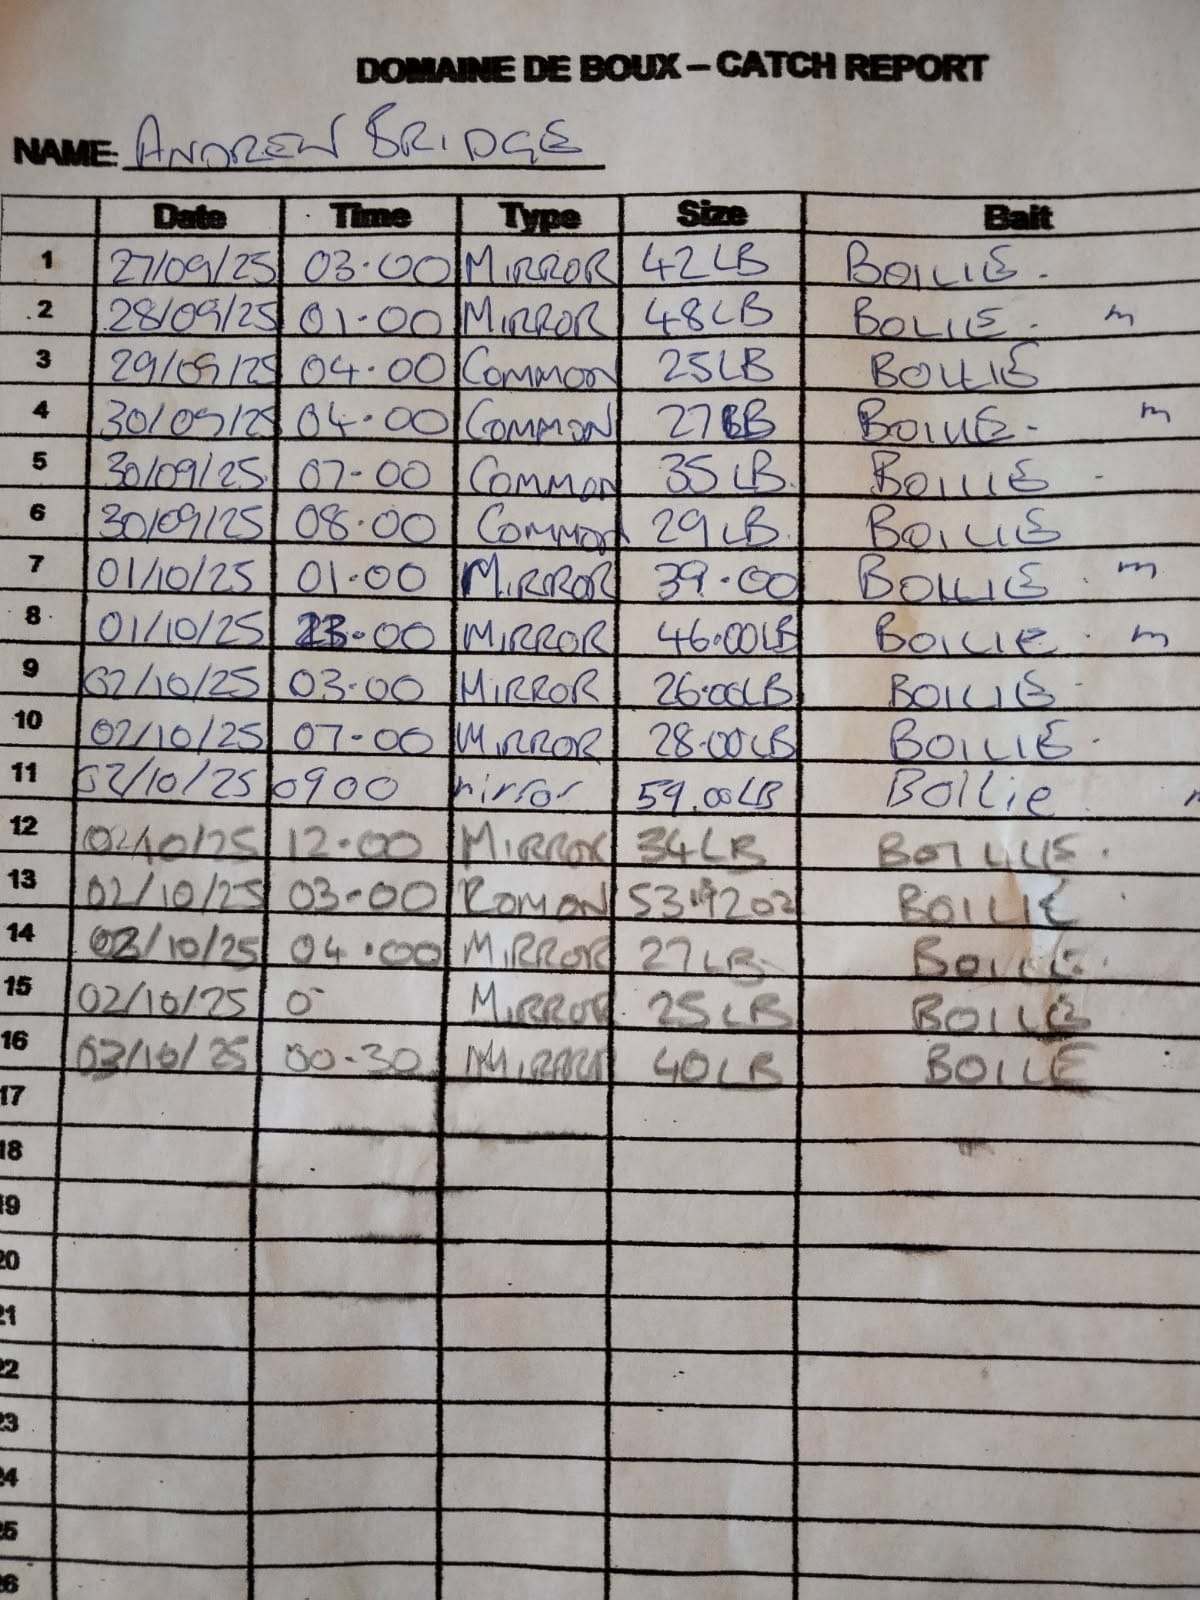 DOMAINE DE BOUX – CATCH REPORT
NAME: ANDREW BRIDGE
Date Time Type Size Bait
1 27/09/25 03.00 MIRROR 42LB BOILIE.
2 28/09/25 01.00 MIRROR 48LB BOLIE. m
3 29/09/25 04.00 COMMON 25LB BOILIE
4 30/09/25 04.00 COMMON 27LB BOILIE. m
5 30/09/25 07-00 COMMON 35LB. BOILIE -
6 30/09/25 08.00 COMMON 29LB. BOILIE
7 01/10/25 01.00 MIRROR 39.00 BOILIE . m
8 01/10/25 23.00 MIRROR 46.00LB BOILIE . m
9 02/10/25 03.00 MIRROR 26.00LB BOILIE
10 02/10/25 07-00 MIRROR 28.00LB BOILIE.
11 02/10/25 0900 mirror 59.00LB Boilie
12 02/10/25 12.00 MIRROR 34LB BOILIE.
13 02/10/25 03-00 BOILIE
14 02/10/25 04.00 MIRROR 27LB BOILE.
15 02/10/25 MIRROR 25LB BOILE
16 03/10/25 00-30 40LB BOILE
17
18
19
20
21
22
23
24
25
26